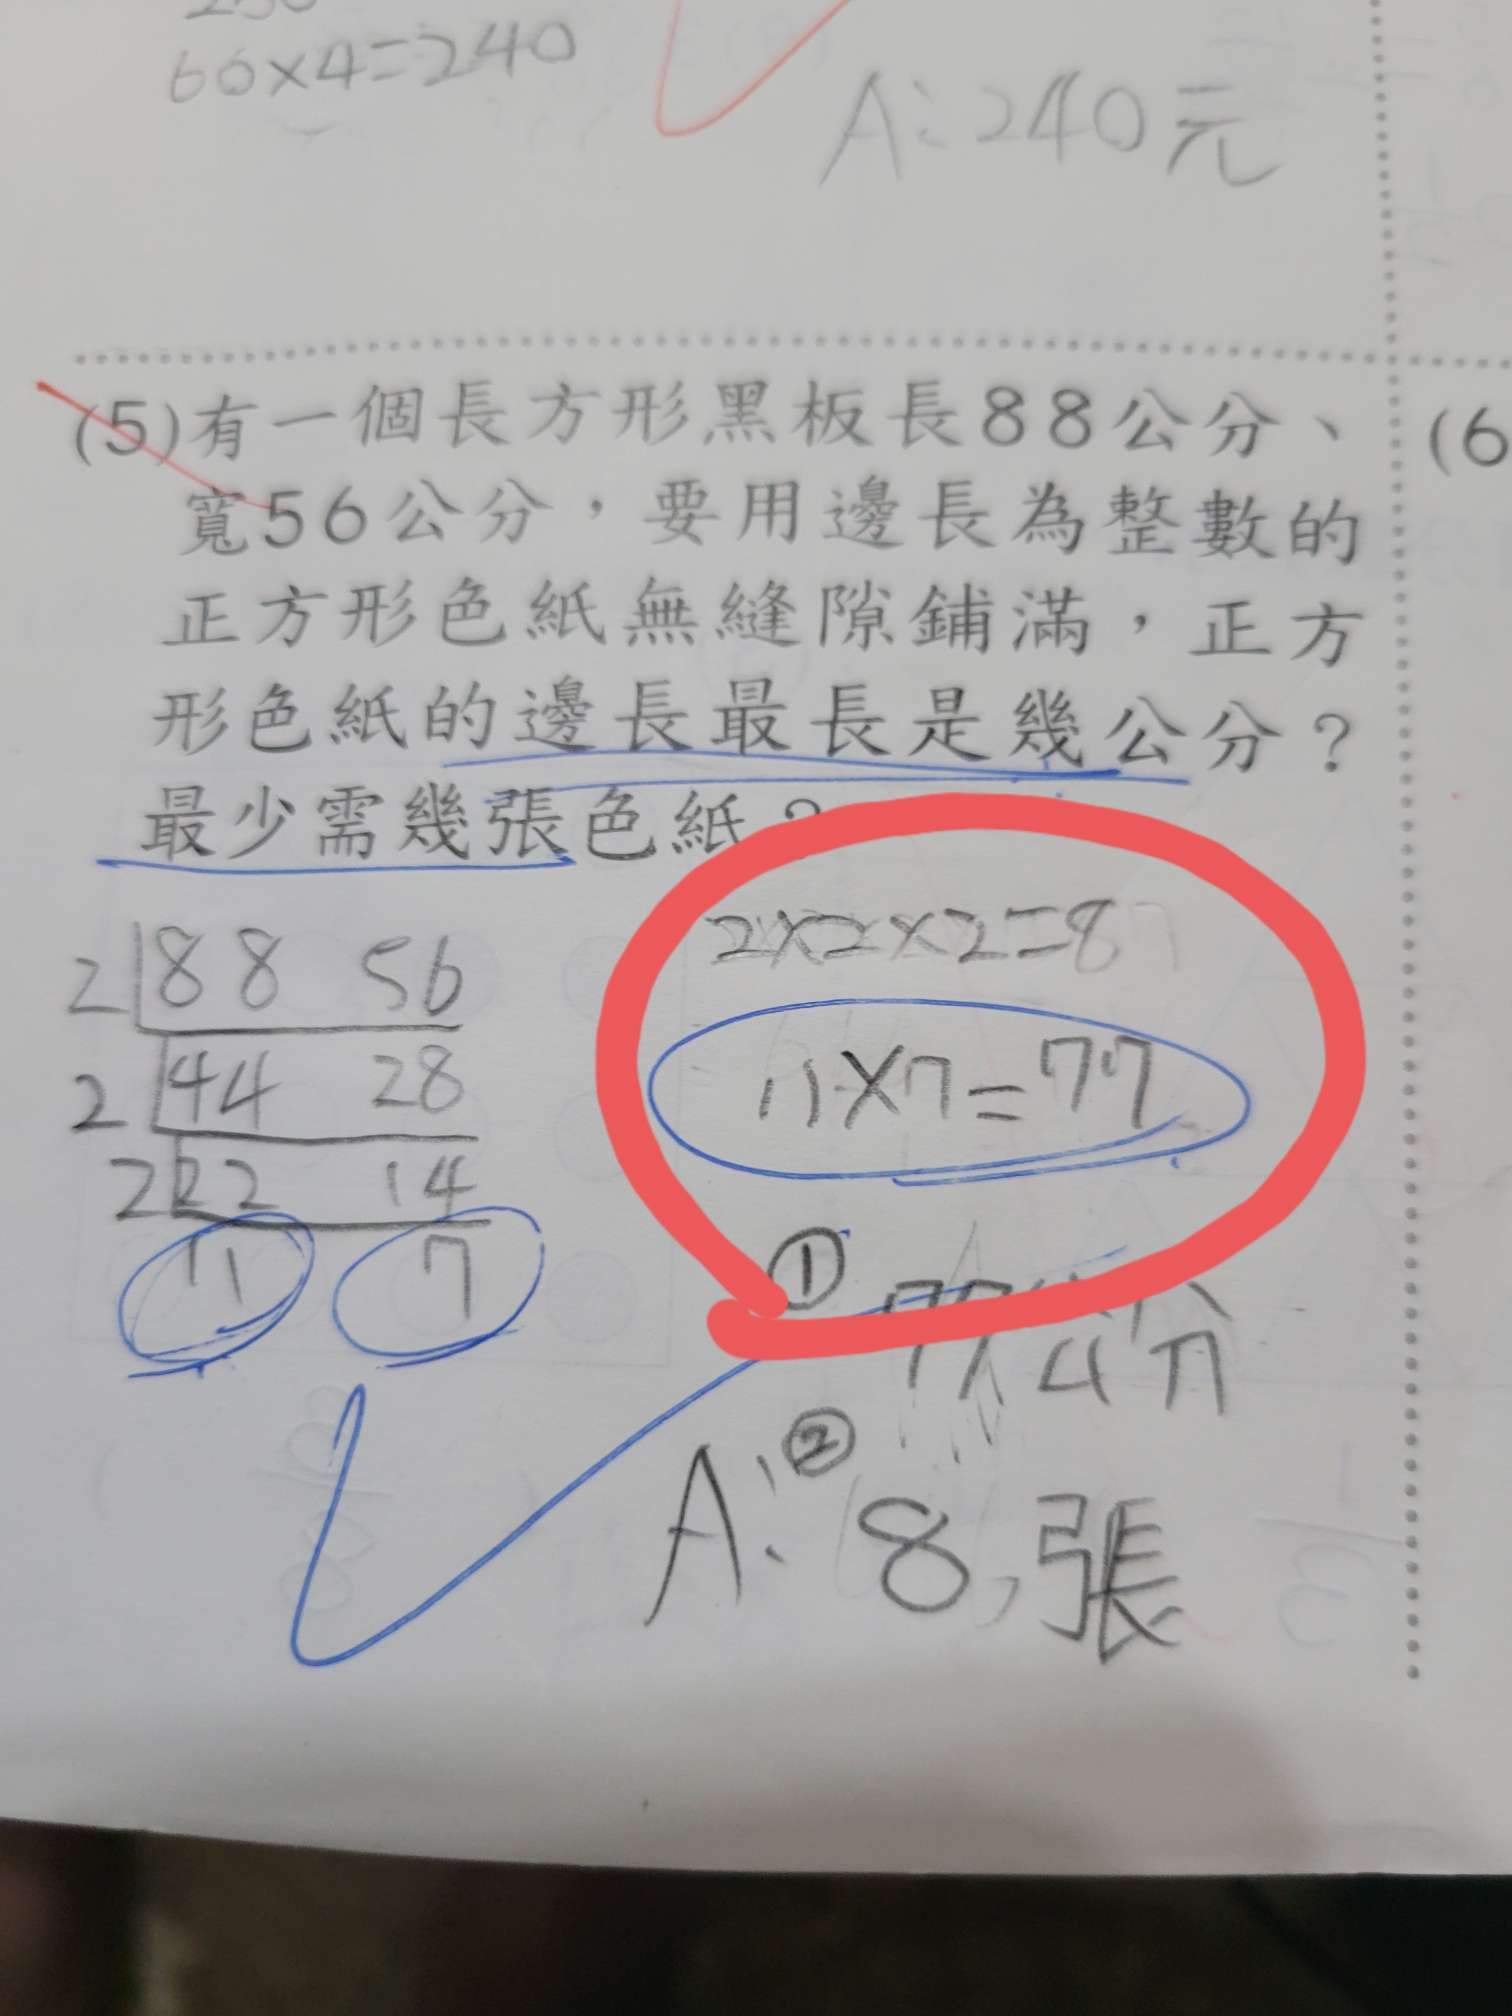 60×4=240
A:240元
(5)有一個長方形黑板長88公分、
寬56公分,要用邊長為整數的
正方形色紙無縫隙鋪滿,正方
形色紙的邊長最長是幾公分?
最少需幾張色紙?
2 88 56
2 44 28
2 22 14
11 7
2×2×2=8
11×7=77
① 77公分
A:② 8張
(6